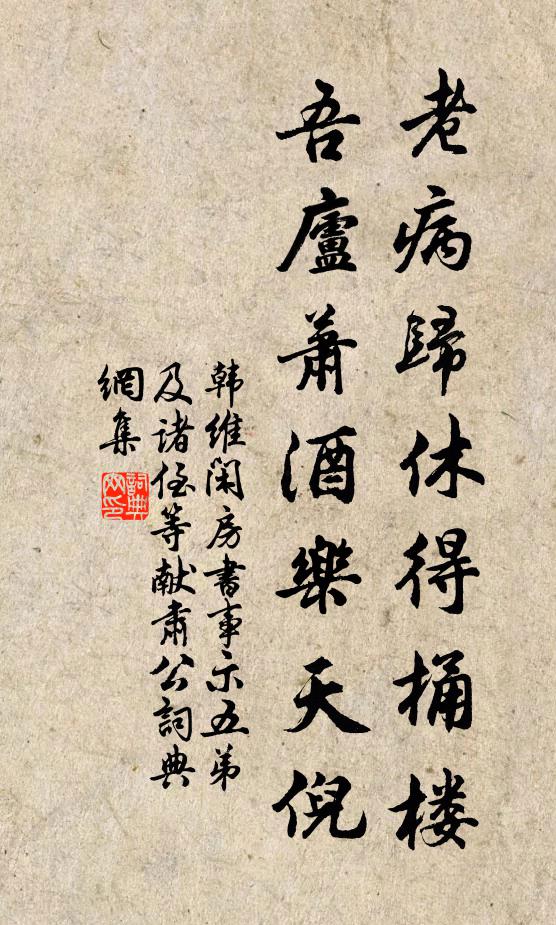 老病歸休得桶楼
吾廬蕭酒樂天倪
韩維閑房書事示五弟
及诸侄等献肃公詞典
網集
詞典网印